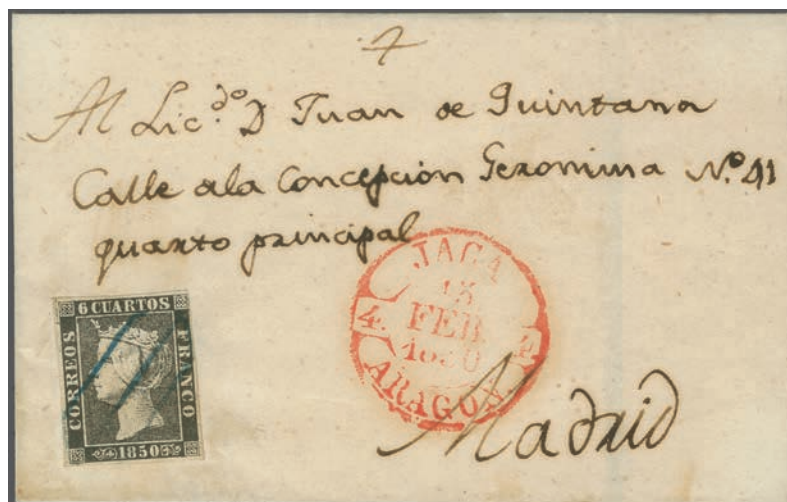 7
Al Lic.do D Juan de Quintana
Calle dela Concepcion Geronima N.o 41
quarto principal
JACA
18
FEB.
1850
4. 4
ARAGON
6 CUARTOS
CORREOS
FRANCO
1850
Madrid